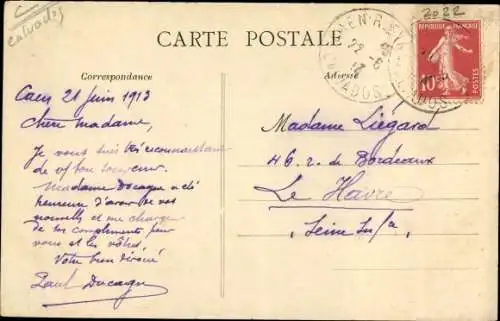 calvados
2022
CARTE POSTALE
Correspondance
Adresse
REPUBLIQUE FRANÇAISE
10c
POSTES
CALVADOS
Caen 21 Juin 1913
Chère Madame,
Je vous suis très reconnaissant
de vot bon souvenir.
Madame Ducagne a été
heureuse d'avoir de vos
nouvelles et me charge
de ses compliments pour
vous et les vôtres,
Votre bien dévoué
Paul Ducagne
Madame Liégard
46. r. de Bordeaux
Le Havre
(Seine Infre